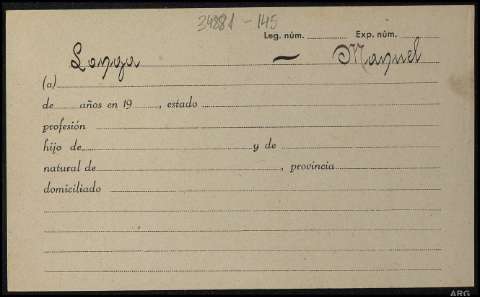 34881-145
Leg. núm. Exp. núm.
Longa — Manuel
(a)
de años en 19 , estado
profesión
hijo de y de
natural de , provincia
domiciliado
ARG